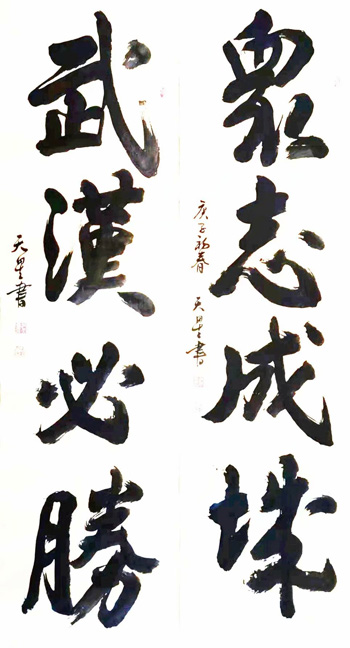 眾志成城
庚子初春
天星書
武漢必勝
天星書